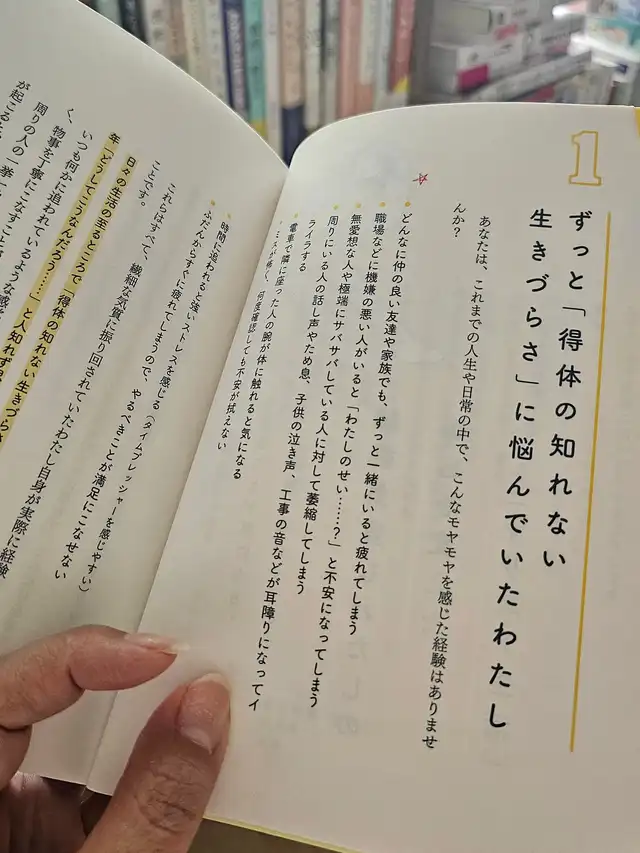 1
ずっと「得体の知れない
生きづらさ」に悩んでいたわたし
あなたは、これまでの人生や日常の中で、こんなモヤモヤを感じた経験はありませ
んか？
どんなに仲の良い友達や家族でも、ずっと一緒にいると疲れてしまう
職場などに機嫌の悪い人がいると「わたしのせい……？」と不安になってしまう
無愛想な人や極端にサバサバしている人に対して萎縮してしまう
周りにいる人の話し声やため息、子供の泣き声、工事の音などが耳障りになってイ
ライラする
電車で隣に座った人の腕が体に触れると気になる
ミスが怖く、何度確認しても不安が拭えない
時間に追われると強いストレスを感じる（タイムプレッシャーを感じやすい）
ふだんからすぐに疲れてしまうので、やるべきことが満足にこなせない
これらはすべて、繊細な気質に振り回されていたわたし自身が実際に経験
ことです。
日々の生活の至るところで「得体の知れない生きづらさ
年「どうしてこうなんだろう……」と人知れず
いつも何かに追われているような感
く、物事を丁寧にこなすことが
周りの人の一挙一
が起こる